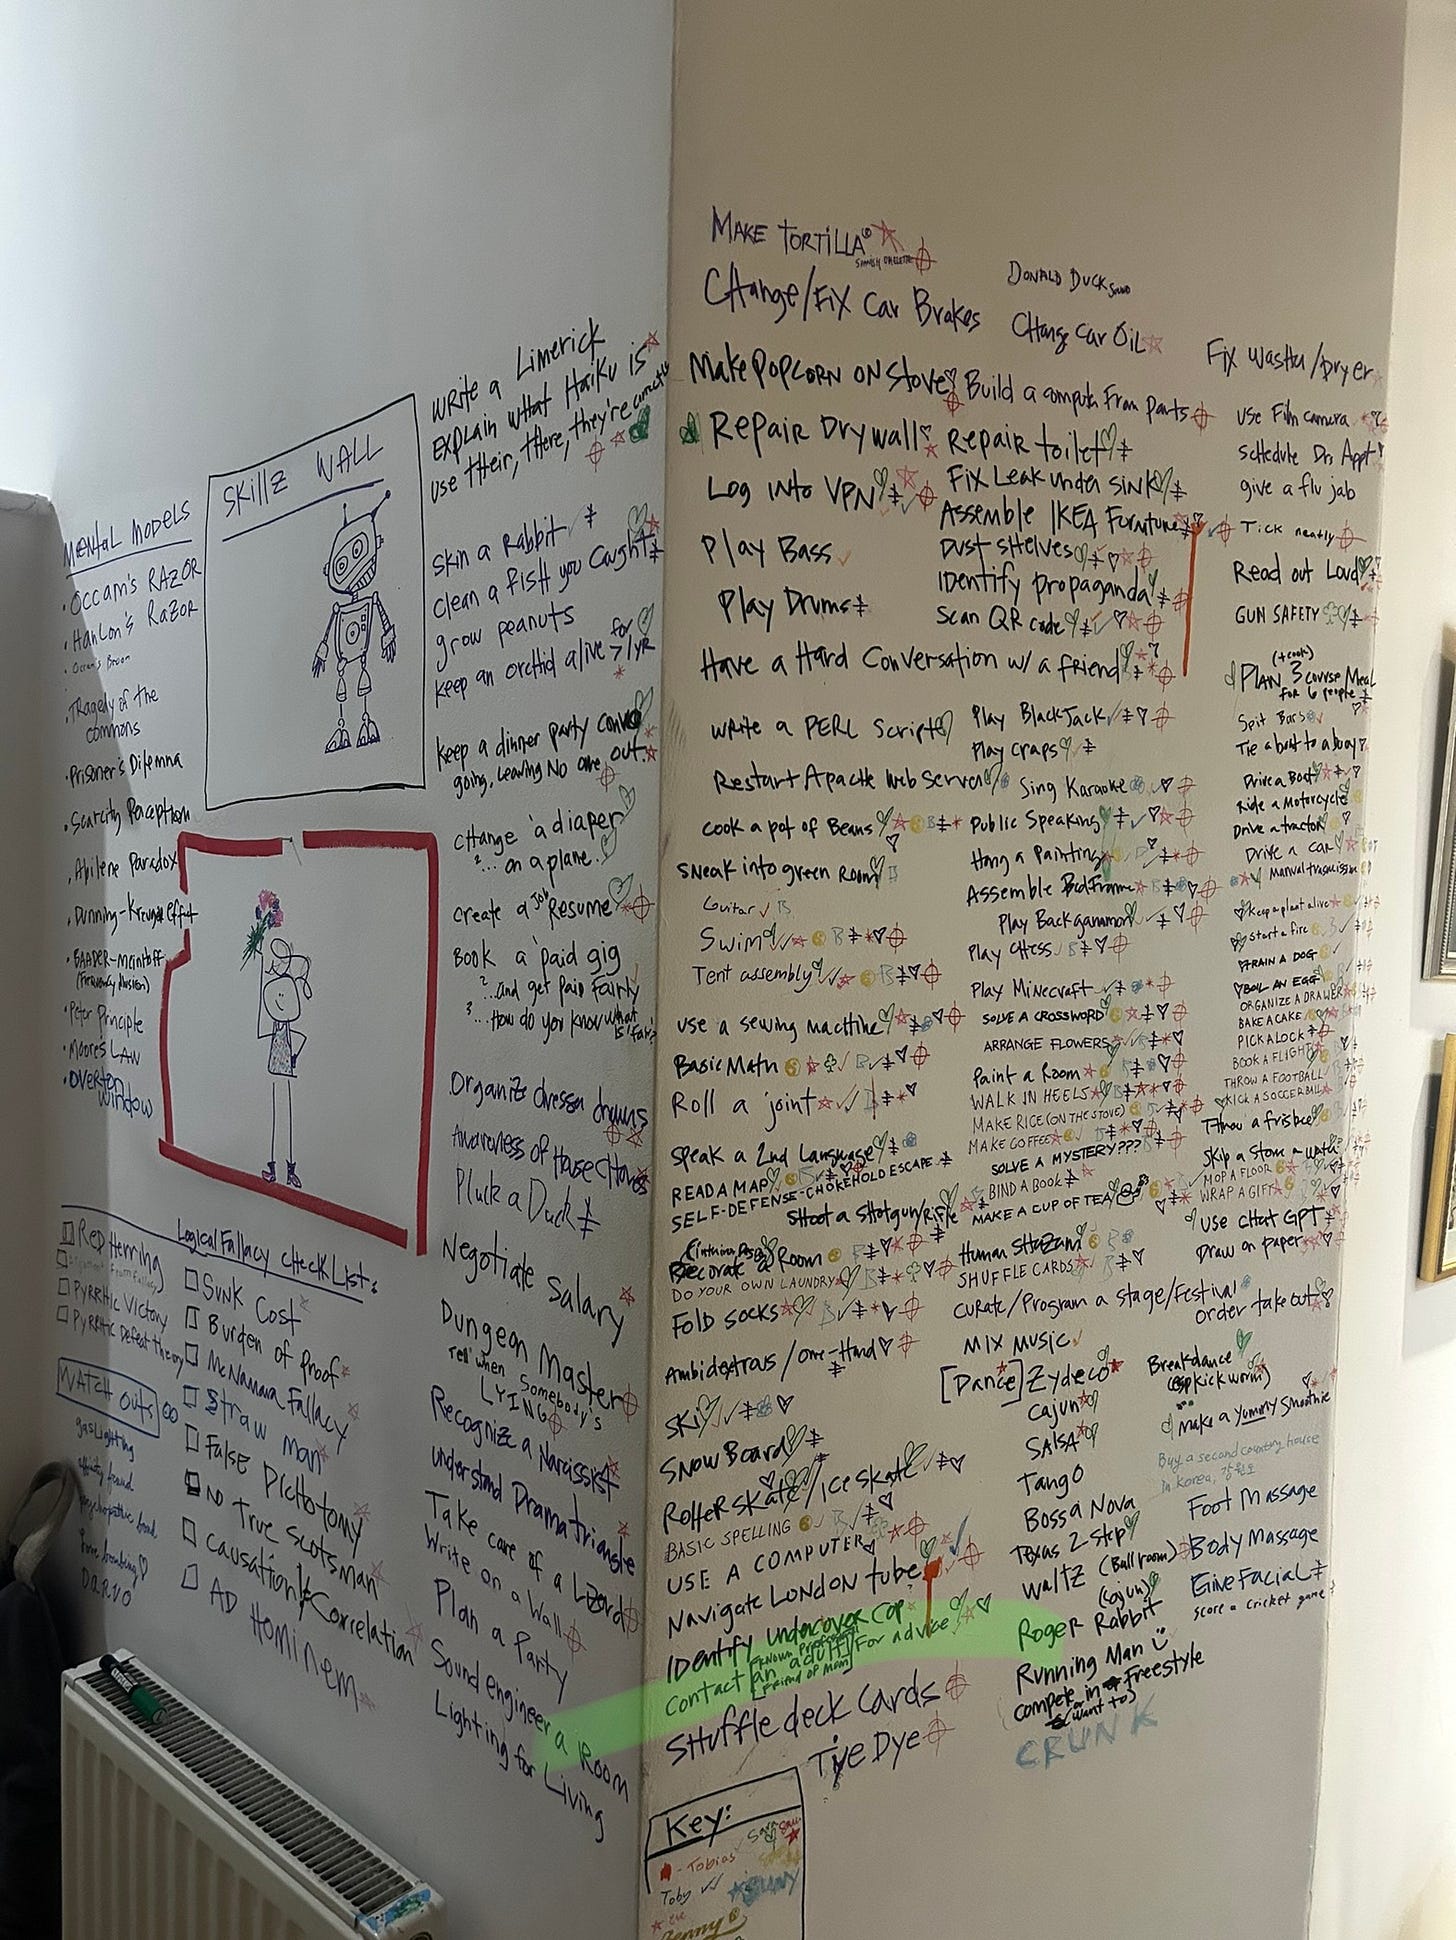 MENTAL MODELS
• OCCAM'S RAZOR
• HANLON'S RAZOR
• TRAGEDY OF THE
COMMONS
• PRISONER'S DILEMNA
• Scarcity Perception
• Abilene Paradox
• Dunning-Kruger effect
• BAADER-Meinhoff
(Frequency illusion)
• Peter Principle
• Moores LAW
• OVERTON
WINDOW
SKillZ WALL
WRITE A Limerick
EXPLAIN WHAT HAIKU IS
USE THEIR, THERE, THEY'RE correctly
SKIN A RABBIT
CLEAN A FISH YOU CAUGHT
grow PEANUTS
KEEP AN ORCHID ALIVE FOR >1YR
KEEP A DINNER PARTY CONVO
GOING, LEAVING NO ONE OUT.
CHANGE A DIAPER
2... ON A PLANE.
CREATE A JOB RESUME
BOOK A PAID GIG
2 ...AND GET PAID FAIRLY
3 ...HOW DO YOU KNOW WHAT
IS 'FAIR'?
Organize dresser drawers
Awareness of House Chores
Pluck a Duck
Negotiate Salary
Dungeon Master
TELL WHEN SOMEBODY'S
LYING
Recognize a Narcissist
Understand Drama triangle
Take care of a Lizard
Write on a Wall
Plan a Party
Sound engineer a Room
Lighting for Living
Logical Fallacy CHECK LIST:
RED HERRING
PYRRHIC VICTORY
PYRRHIC Defeat theory
SUNK COST
Burden of proof
McNamara Fallacy
Straw man
FALSE DICHOTOMY
NO TRUE SCOTSMAN
CAUSATION/Correlation
AD Hominem
WATCH OUTS
gaslighting
affinity fraud
Love bombing
DARVO
MAKE TORTILLA
SPANISH OMELETTE
CHange/Fix Car Brakes
Make POPCORN ON Stove
Repair Drywall
Log into VPN
Play Bass
Play Drums
Have a Hard Conversation w/ a friend
Write a PERL Script
Restart Apache Web Server
Cook a pot of Beans
SNEAK into green Room
Guitar
Swim
Tent assembly
use a sewing machine
Basic Math
Roll a joint
Speak a 2nd Language
READ A MAP
SELF-DEFENSE-CHOKEHOLD ESCAPE
Shoot a Shotgun/Rifle
Decorate a Room
DO YOUR OWN LAUNDRY
FOLD SOCKS
Ambidextrous/one-Hand
SKI
SNOWBOARD
Rollerskate/ice skate
BASIC SPELLING
USE A COMPUTER
NAVIGATE LONDON tube
IDENTIFY undercover cop
Contact an adult for advice
[Friend of Mom]
SHUFFLE deck cards
TYE DYE
DONALD DUCK Sound
CHange Car Oil
Build a computer from parts
Repair toilet
Fix Leak under sink
Assemble IKEA Furniture
Dust SHelves
IDENTIFY propaganda
Scan QR code
Play BlackJack
Play craps
Sing Karaoke
Public Speaking
Hang a Painting
Assemble Bed Frame
Play Backgammon
PLAY CHESS
Play Minecraft
SOLVE A CROSSWORD
ARRANGE FLOWERS
Paint a Room
WALK IN HEELS
MAKE RICE (ON THE STOVE)
MAKE COFFEE
SOLVE A MYSTERY???
BIND A BOOK
MAKE A CUP OF TEA
Human Shazam
SHUFFLE CARDS
Curate/Program a stage/Festival
MIX MUSIC
[Dance] Zydeco
Cajun
SALSA
TANGO
BOSSA NOVA
TEXAS 2 Step
WALTZ (Ballroom)
(cajun)
Roger Rabbit
Running Man
compete in Freestyle
(want to)
CRUNK
Fix Washer/Dryer
use Film camera
Schedule Drs Appt
give a flu jab
TICK neatly
Read out Loud
GUN SAFETY
(+cook)
PLAN 3 course Meal
for 6 people
Spit Bars
Tie a boat to a buoy
Drive a Boat
Ride a Motorcycle
Drive a tractor
Drive a car
Manual transmission
Keep a plant alive
start a fire
TRAIN A DOG
BOIL AN EGG
ORGANIZE A DRAWER
BAKE A CAKE
PICK A LOCK
BOOK A FLIGHT
THROW A FOOTBALL
KICK A SOCCERBALL
THROW a frisbee
Skip a stone on water
MOP A FLOOR
WRAP A GIFT
USE CHAT GPT
DRAW on paper
Order take out
Breakdance
(esp kick worm)
Make a yummy Smoothie
Buy a second country house
in Korea, 강원도
Foot Massage
Body Massage
Give Facial
score a cricket game
Key:
Sara
- Tobias
Toby
Penny